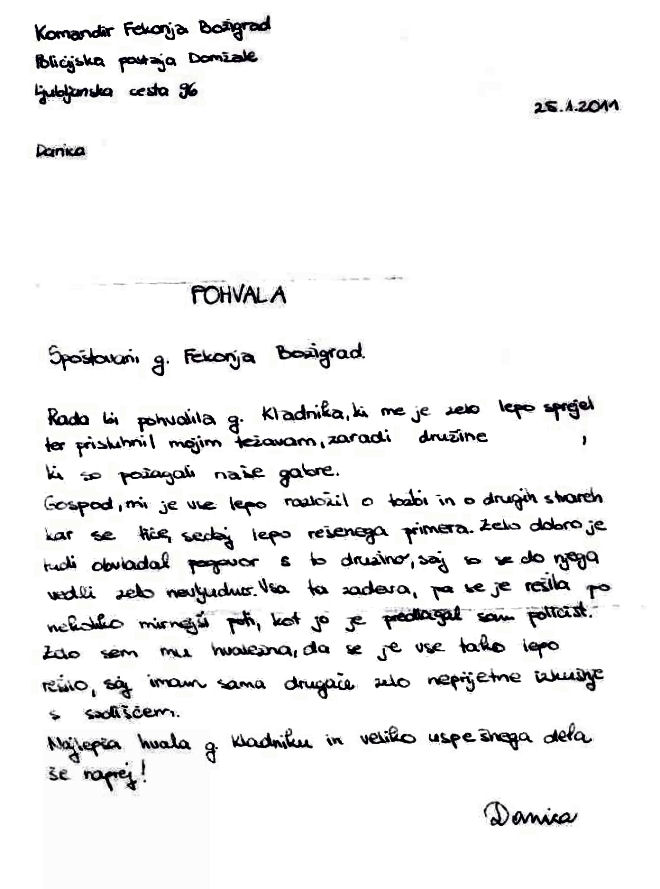 Komandir Fekonja Božigrad
Policijska postaja Domžale
Ljubljanska cesta 96
25.1.2011
Danica
POHVALA
Spoštovani g. Fekonja Božigrad.
Rada bi pohvalila g. Kladnika, ki me je zelo lepo sprejel
ter prisluhnil mojim težavam, zaradi družine ,
ki so požagali naše gabre.
Gospod, mi je vse lepo razložil o tožbi in o drugih stvareh
kar se tiče, sedaj lepo rešenega primera. Zelo dobro je
tudi obvladal pogovor s to družino, saj so se do njega
vedli zelo nevljudno. Vsa ta zadeva, pa se je rešila po
nekoliko mirnejši poti, kot jo je predlagal sam policist.
Zelo sem mu hvaležna, da se je vse tako lepo
rešilo, saj imam sama drugače zelo neprijetne izkušnje
s sodiščem.
Najlepša hvala g. Kladniku in veliko uspešnega dela
še naprej!
Danica